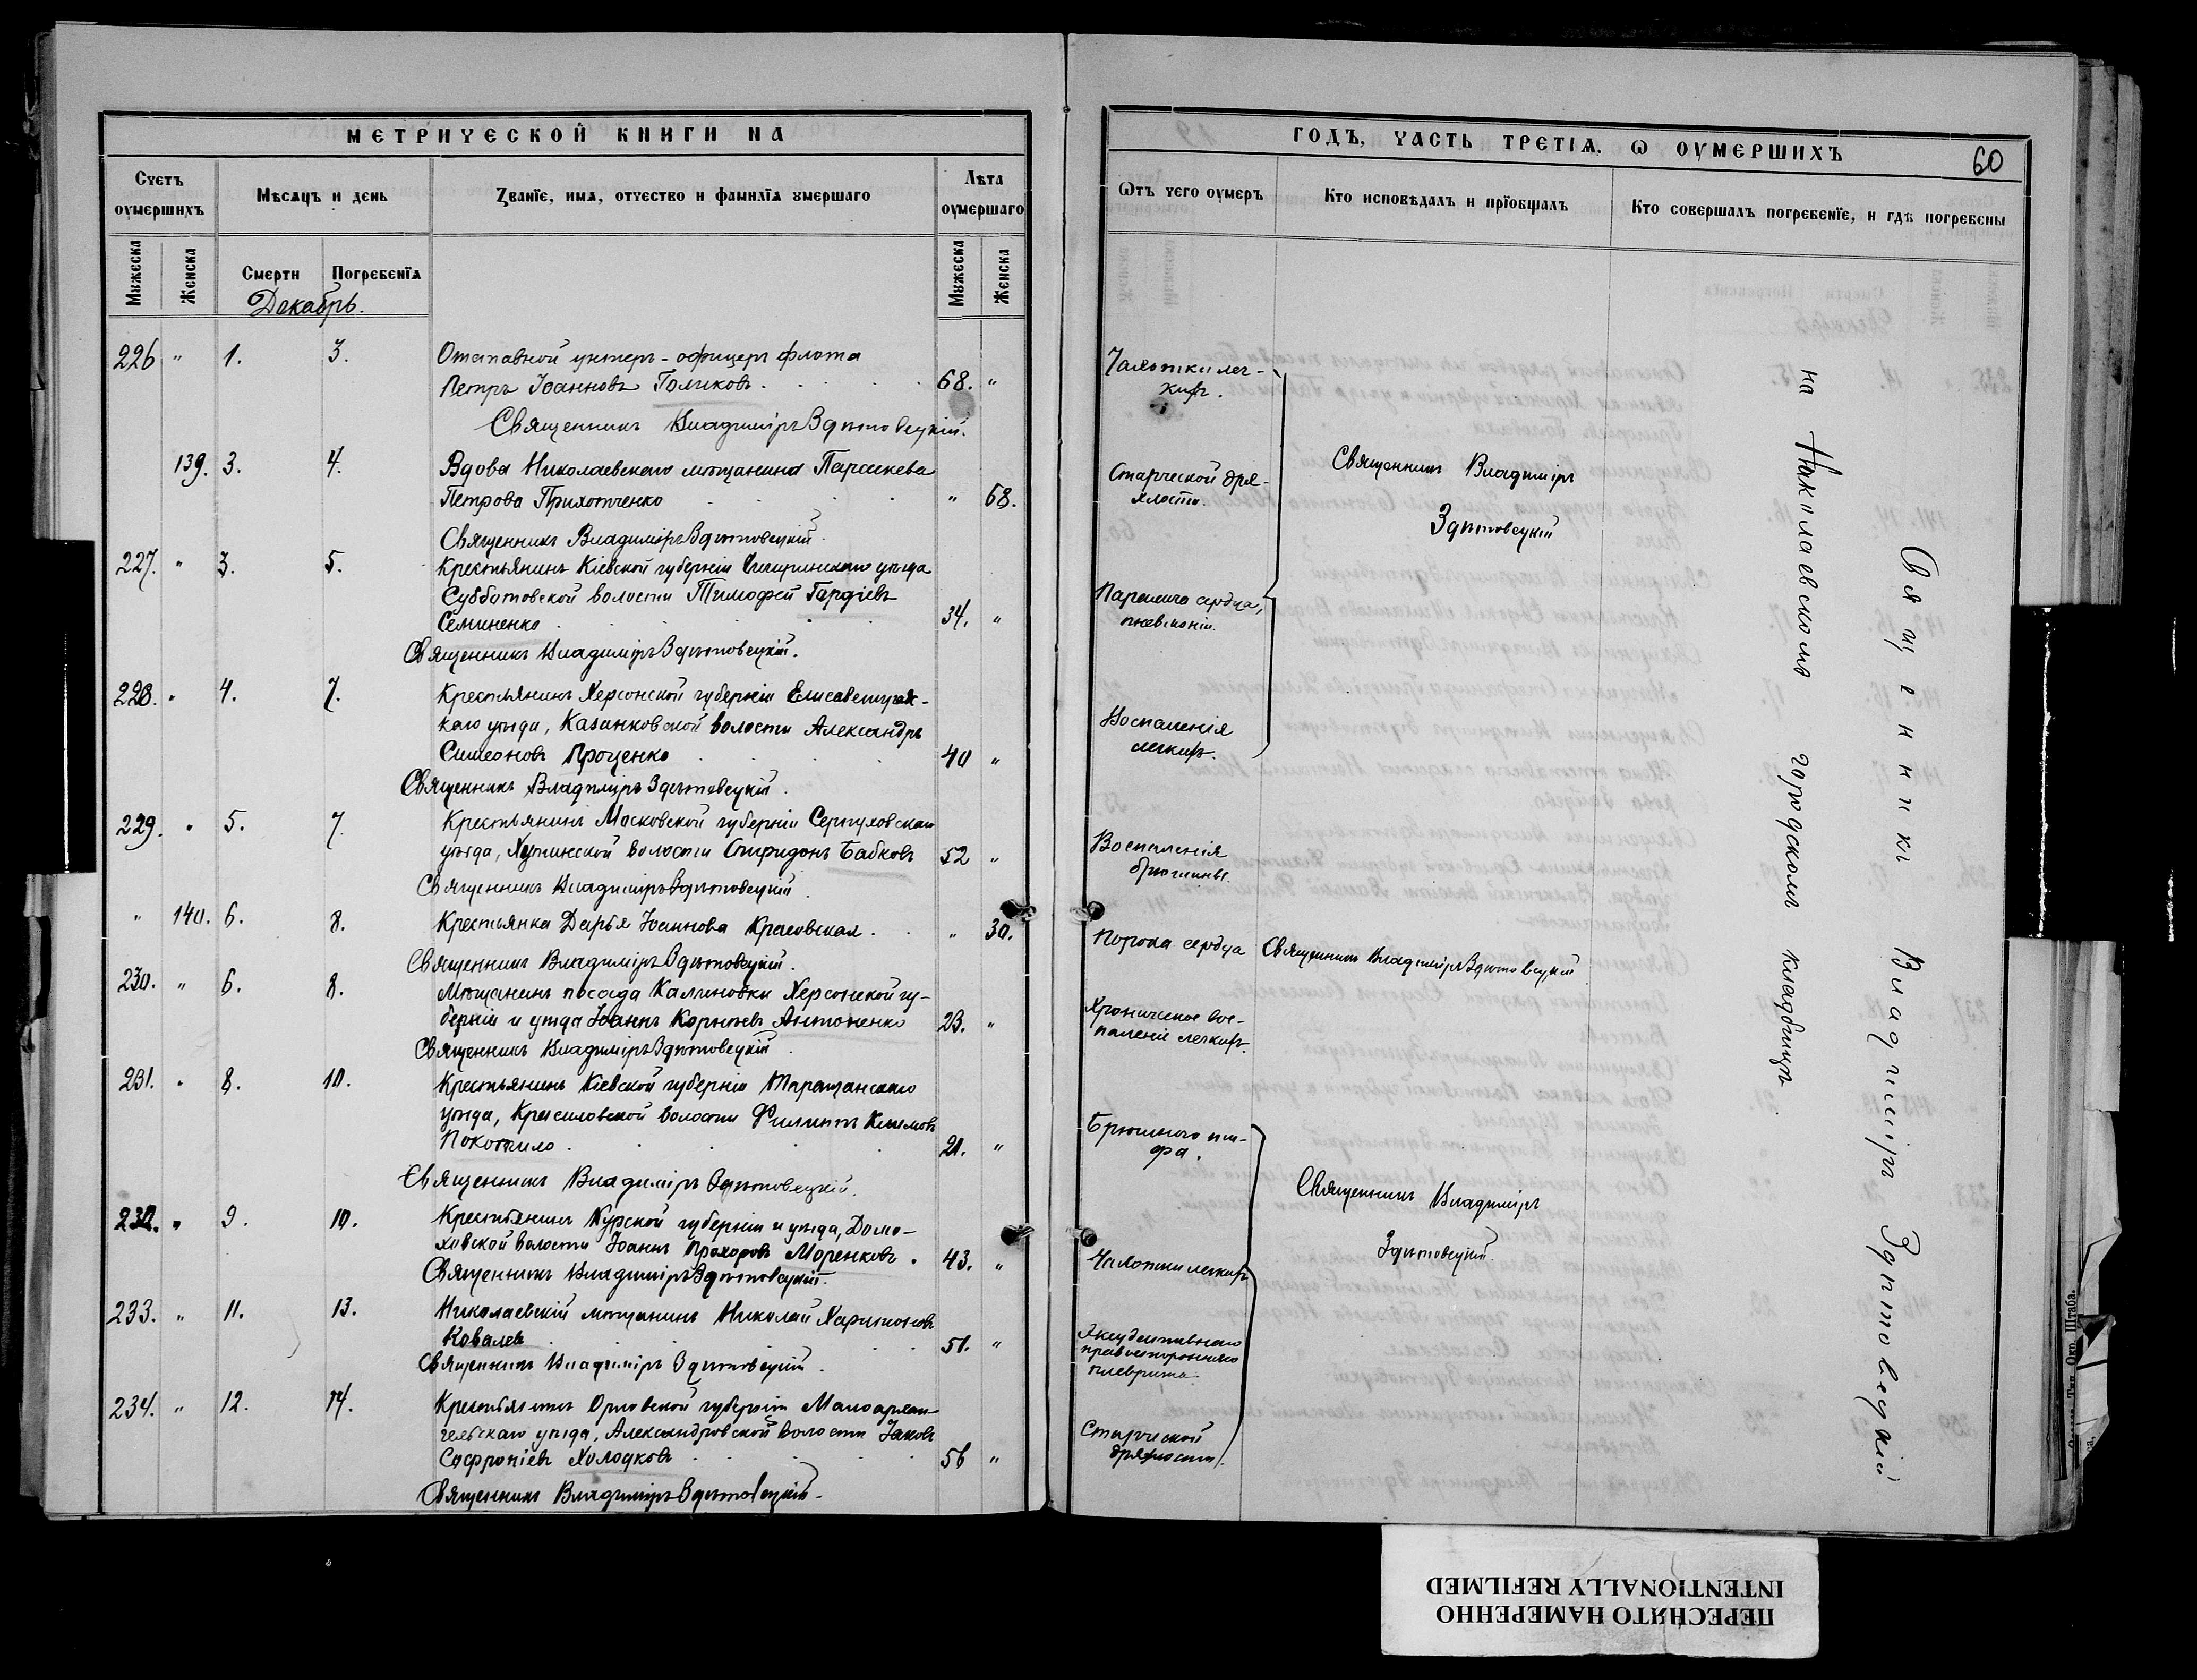 МЕТРИЧЕСКОЙ КНИГИ НА
Счетъ оумершихъ
Мѣсяцъ и день
Званїе, имя, отчество и фамилїя умершаго
Лѣта оумершаго
Мужеска
Женска
Смерти
Погребенїя
Мужеска
Женска
Декабрь.
226 " 1. 3. Отставной унтеръ-офицеръ флота
Петръ Іоанновъ Голиковъ. 68. "
Священникъ Владиміръ Здѣтовецкій.
139. 3. 4. Вдова Николаевскаго мѣщанина Параскева
Петрова Прихотченко " 68.
Священникъ Владиміръ Здѣтовецкій
227. " 3. 5. Крестьянинъ Кіевской губерніи Чигиринскаго уѣзда
Субботовской волости Тимофей Гордіевъ
Семиненко 34. "
Священникъ Владиміръ Здѣтовецкій.
228. " 4. 7. Крестьянинъ Херсонской губерніи Елисаветградс-
каго уѣзда, Казанковской волости Александръ
Симеоновъ Проценко 40 "
Священникъ Владиміръ Здѣтовецкій.
229. " 5. 7. Крестьянинъ Московской губерніи Серпуховскаго
уѣзда, волости Спиридонъ Бабковъ 52 "
Священникъ Владиміръ Здѣтовецкій
" 140. 6. 8. Крестьянка Дарья Іоаннова Красовская. " 30.
Священникъ Владиміръ Здѣтовецкій.
230. " 6. 8. Мѣщанинъ посада Калиновки Херсонской гу-
берніи и уѣзда Іоаннъ Корнѣевъ Антоненко 23. "
Священникъ Владиміръ Здѣтовецкій
231. " 8. 10. Крестьянинъ Кіевской губерніи Таращанскаго
уѣзда, волости Филиппъ Климовъ
Покотило. 21. "
Священникъ Владиміръ Здѣтовецкій.
232. " 9. 10. Крестьянинъ Курской губерніи и уѣзда, Домо-
ховской волости Іоаннъ Прохоровъ Моренковъ. 43. "
Священникъ Владиміръ Здѣтовецкій.
233. " 11. 13. Николаевскій мѣщанинъ Николай Харитоновъ
Ковалевъ 51. "
Священникъ Владиміръ Здѣтовецкій.
234. " 12. 14. Крестьянинъ Орловской губерніи Малоархан-
гельскаго уѣзда, Александровской волости Іаковъ
Софроніевъ Холодковъ 56 "
Священникъ Владиміръ Здѣтовецкій
ГОДЪ, ЧАСТЬ ТРЕТІЯ, Ѡ ОУМЕРШИХЪ
60
Ѿтъ чего оумеръ
Кто исповѣдалъ и прїобщалъ
Кто совершалъ погребенїе, и гдѣ погребены
Чахотки лег-
кихъ.
Старческой дря-
хлости.
Паралича сердца,
пневмоніи.
Воспаленія
легкихъ.
Священникъ Владиміръ
Здѣтовецкій
Воспаленія
брюшины.
Порока сердца Священникъ Владиміръ Здѣтовецкій
Хроническое вос-
паленіе легкихъ.
Брюшного ти-
фа.
Чахотки легкихъ
Экссудативнаго
правосторонняго
плеврита
Старческой
дряхлости.
Священникъ Владиміръ
Здѣтовецкій.
на Николаевскомъ городскомъ кладбищѣ.
Священникъ Владиміръ Здѣтовецкій
Одесса Тип. Окр. Штаба.
ПЕРЕСНЯТО НАМЕРЕННО
INTENTIONALLY REFILMED